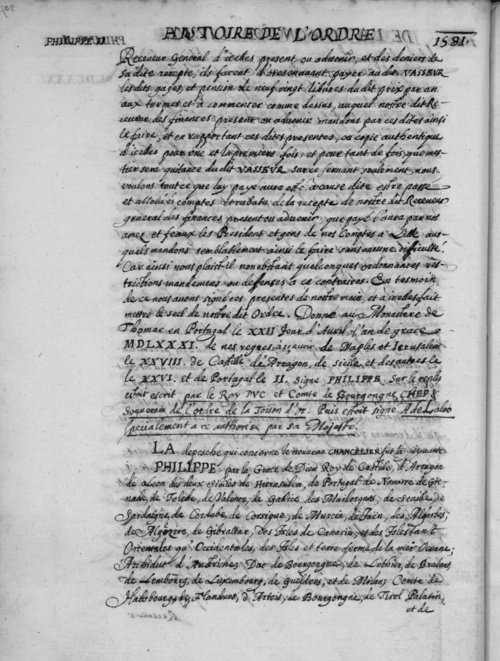 PHILIPPE II HISTOIRE DE L'ORDRE 1581.
Receveur General d'icelles present, ou advenir, et des deniers de
sa dite recepte, ils facent d'oresenavant, payer au dit VASSEUR
lesdits gages, et pension de neuf vingt libures du dit prix par an
aux termes et a commencer comme dessus, auquel nostre dit Re-
ceveur des finances present ou advenir mandons par ces dites ainsi
le faire, et en rapportant ces dites presentes, ou copie authentique
d'icelles pour une et la premiere fois, et pour tant de fois, que mes-
tier sera quitance du dit VASSEUR sur ce servant seulement, nous
voulons tout ce que luy paye aura esté a cause dite estre passé
et alloué es comptes et rabatu de la recepte de nostre dit Receveur
general des finances present ou advenir que payé l'aura par nos
amez et feaux les President et gens de nos Comptes a Lille aus-
quels mandons semblablement ainsi le faire sans nulle difficulté.
Car ainsi nous plaist il nonobstant quelconques ordonnances res-
trictions mandemens ou defenses a ce contraires. En tesmoin
de ce nous avons signé ces presentes de nostre main, et a icelles fait
mettre le seel de nostre dit Ordre. Donné au Monastere de
Thomar en Portugal le XXII Jour d'Avril l'an de grace
MDLXXXI. de nos regnes a scavoir de Naples et Jerusalem
le XXVIII. de Castille, de Arragon, de Sicile et des autres le
le XXVI. et de Portugal le II. signé PHILIPPE. Sur le replis
estoit escrit par le Roy DUC et Comte de Bourgongne CHEF &
Souverain de l'ordre de la Toison d'or. Puis estoit signé A de Laloo
specialement a ce authorisé par sa Majesté.
LA depesche qui concerne le nouveau CHANCELIER fut la suivante
PHILIPPE par la Grace de Dieu Roy de Castille, d'Arragon
de Leon des deux Siciles de Hierusalem, de Portugal de Navarre de Gre-
nade, de Tolede, de Valence, de Galice des Maillorques, de Seville, de
Sardaigne, de Cordube, de Corsique, de Murcia, de Jaen, des Algarbes,
de Algezire, de Gibraltar, des Isles de Canarie, et des Isles tant
Orientales qu'Occidentales, des Isles et terre ferme de la mer Oceane,
Archiduc d'Austriche, Duc de Bourgongne, de Lothier, de Brabant,
de Lembourg, de Luxembourg, de Gueldres, et de Milan, Comte de
Habsbourg, de Flandres, d'Artois, de Bourgongne, de Tirol Palatin,
et de